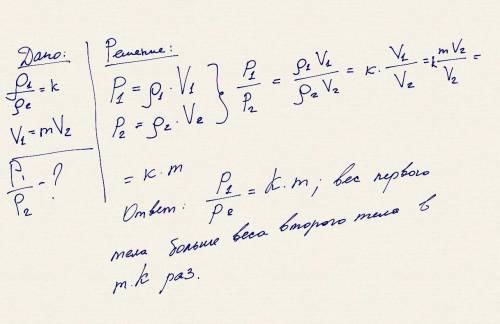 Дано:
ρ1/ρ2 = k
V1 = mV2
P1/P2 - ?
Решение:
P1 = ρ1 · V1
P2 = ρ2 · V2
P1/P2 = ρ1 V1/ρ2 V2 = k · V1/V2 = k mV2/V2 =
= k · m
Ответ: P1/P2 = k · m; вес первого
тела больше веса второго тела в
m·k раз.